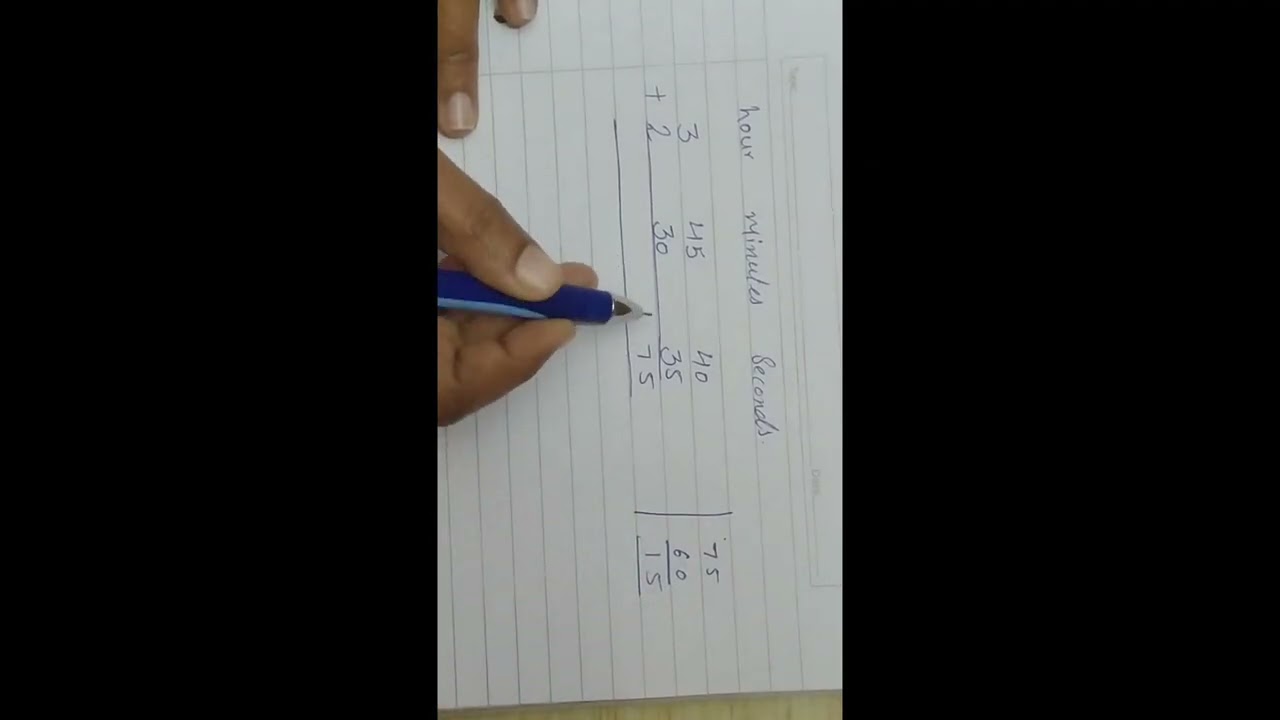 hour minutes Seconds.
3 45 40
+ 2 30 35
75
75
60
15